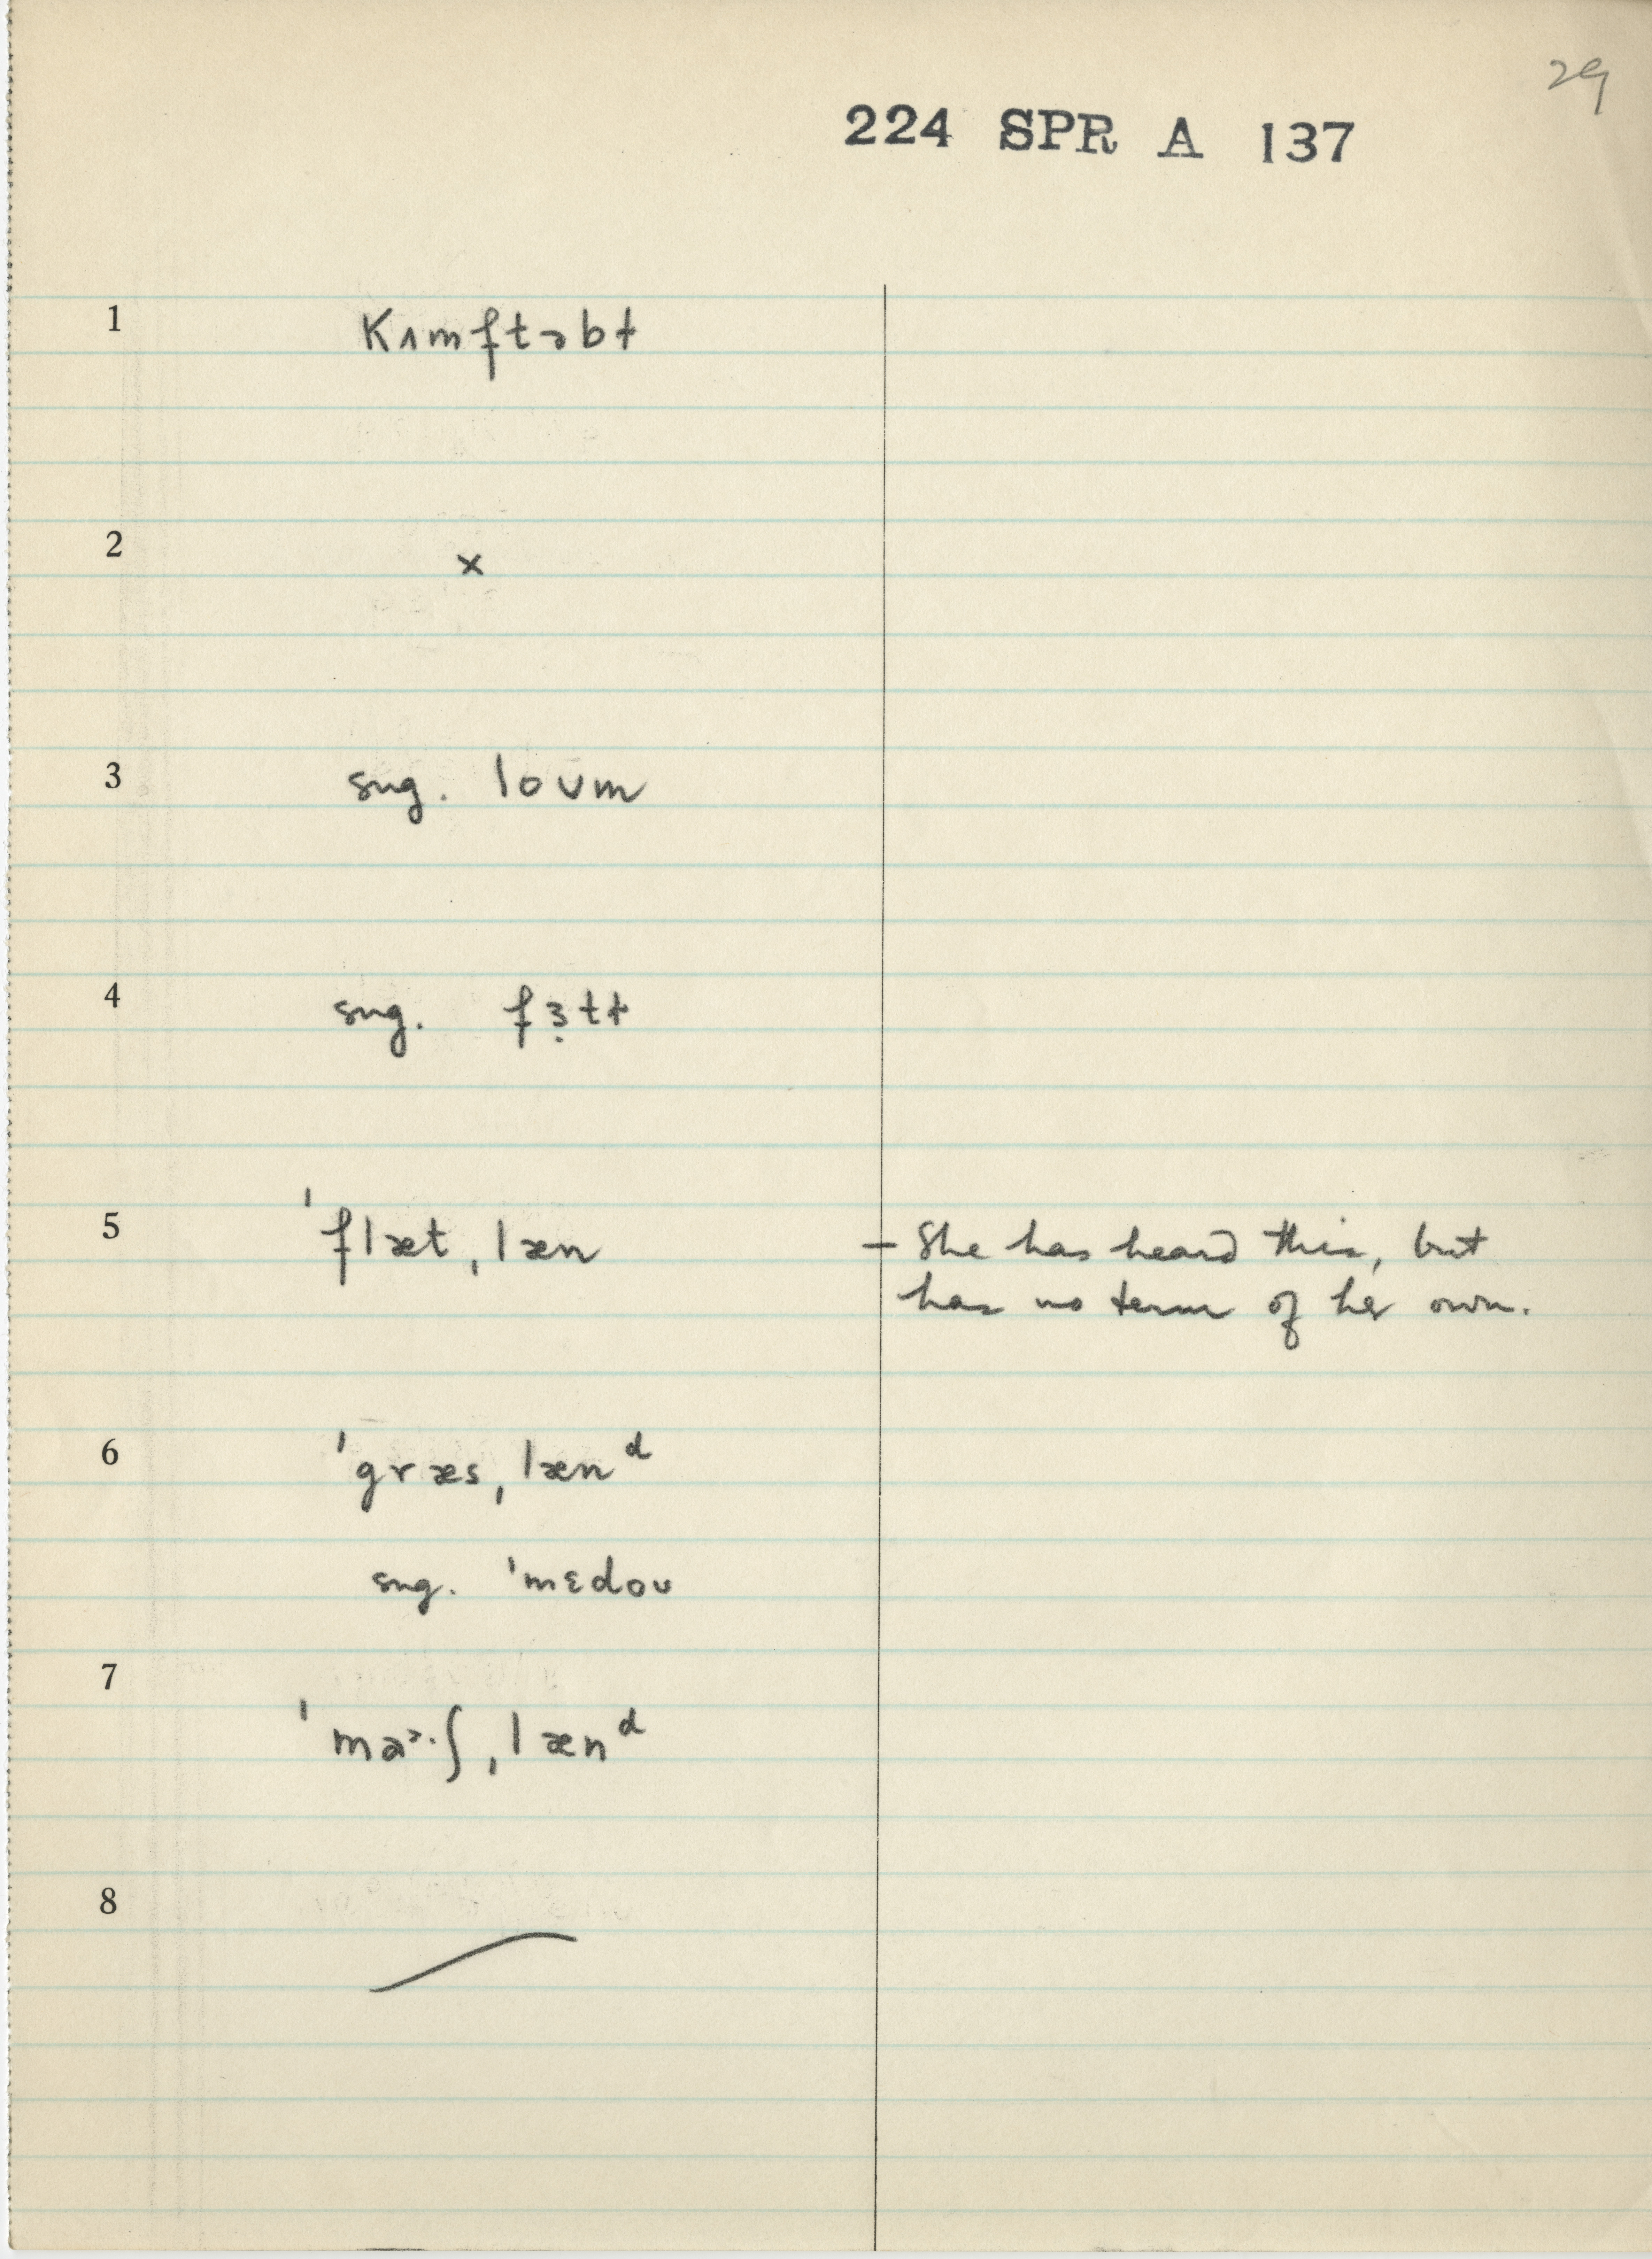 29
224 SPR A 137
1 Kʌmftəbɫ
2 ×
3 sug. loʊm
4 sug. fɜ̣tɫ
5 ˈflætˌlæn – She has heard this, but
has no term of her own.
6 ˈgræsˌlænᵈ
sug. ˈmɛdoʊ
7
8